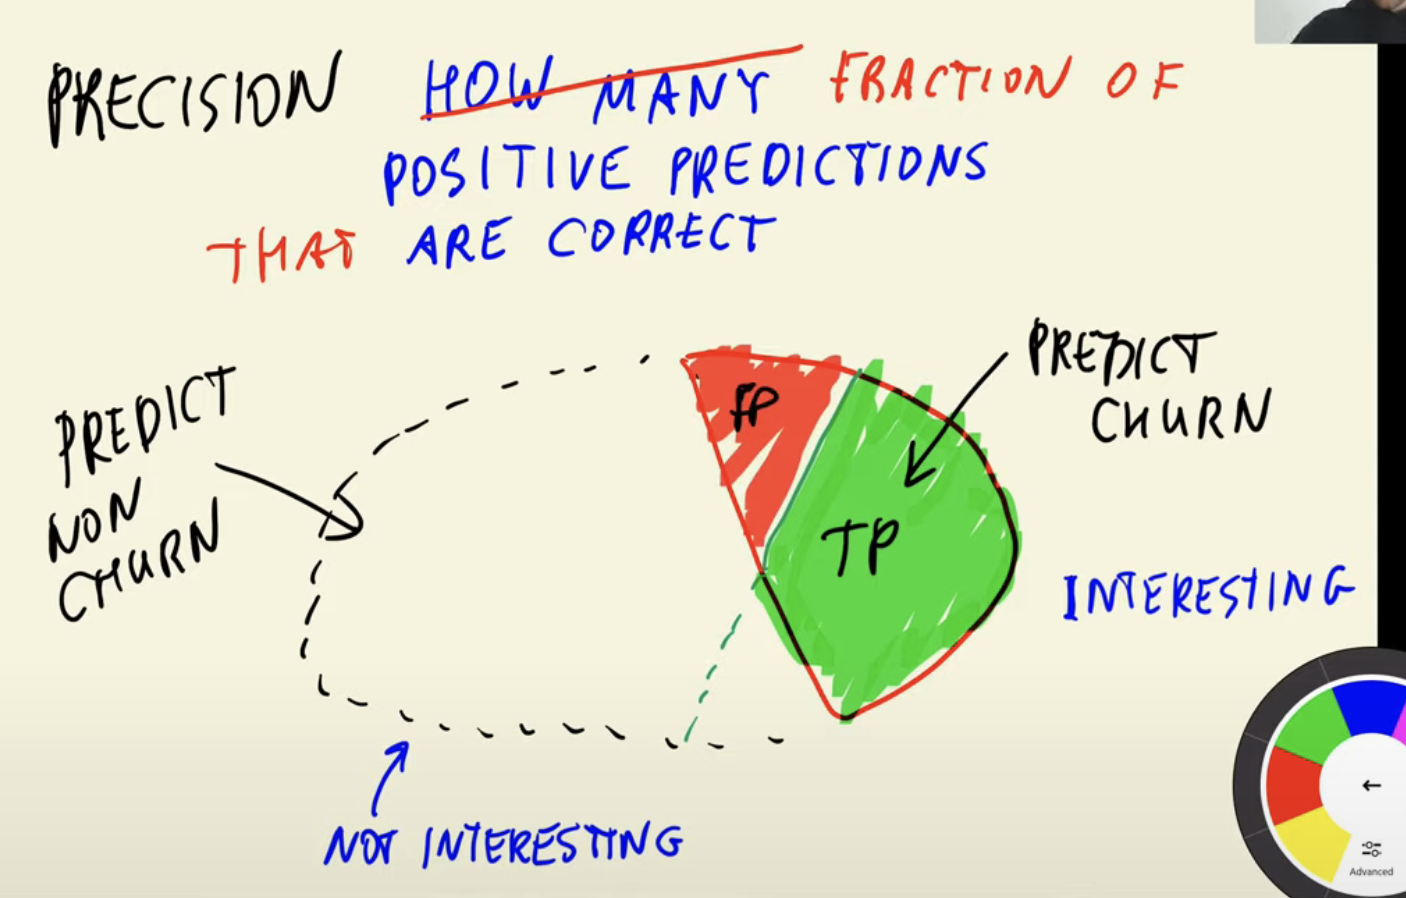 PRECISION HOW MANY FRACTION OF
POSITIVE PREDICTIONS
THAT ARE CORRECT
PREDICT
NON
CHURN
FP
TP
PREDICT
CHURN
INTERESTING
NOT INTERESTING
Advanced